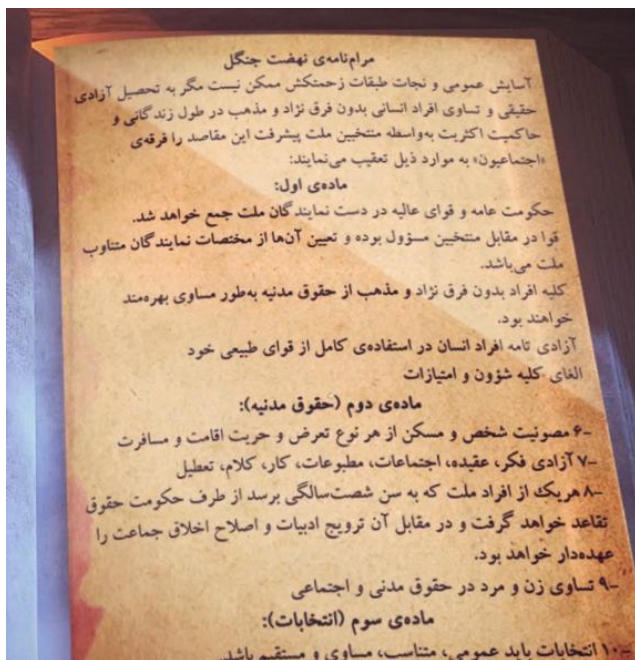 مرام‌نامه‌ی نهضت جنگل
آسایش عمومی و نجات طبقات زحمتکش ممکن نیست مگر به تحصیل آزادی
حقیقی و تساوی افراد انسانی بدون فرق نژاد و مذهب در طول زندگانی و
حاکمیت اکثریت به‌واسطه منتخبین ملت پیشرفت این مقاصد را فرقه‌ی
«اجتماعیون» به موارد ذیل تعقیب می‌نمایند:
ماده‌ی اول:
حکومت عامه و قوای عالیه در دست نمایندگان ملت جمع خواهد شد.
قوا در مقابل منتخبین مسؤول بوده و تعیین آن‌ها از مختصات نمایندگان متناوب
ملت می‌باشد.
کلیه افراد بدون فرق نژاد و مذهب از حقوق مدنیه به‌طور مساوی بهره‌مند
خواهند بود.
آزادی تامه افراد انسان در استفاده‌ی کامل از قوای طبیعی خود
الغای کلیه شؤون و امتیازات
ماده‌ی دوم (حقوق مدنیه):
۶- مصونیت شخص و مسکن از هر نوع تعرض و حریت اقامت و مسافرت
۷- آزادی فکر، عقیده، اجتماعات، مطبوعات، کار، کلام، تعطیل
۸- هریک از افراد ملت که به سن شصت‌سالگی برسد از طرف حکومت حقوق
تقاعد خواهد گرفت و در مقابل آن ترویج ادبیات و اصلاح اخلاق جماعت را
عهده‌دار خواهد بود.
۹- تساوی زن و مرد در حقوق مدنی و اجتماعی
ماده‌ی سوم (انتخابات):
۱۰- انتخابات باید عمومی، متناسب، مساوی و مستقیم باشد.